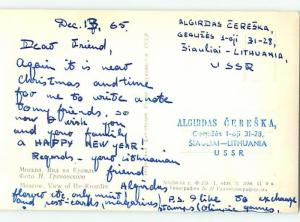 Dec. 13, 65.
Dear Friend,
Again it is near
Christmas and time
for me to write a note
to my friends, so
now I wish you
and your family
a HAPPY NEW YEAR!
Regards – your Lithuanian
friend
Algirdas
ALGIRDAS ČEREŠKA,
GEGUŽĖS 1-oji 31-28,
Šiauliai - LITHUANIA,
USSR
ALGIRDAS ČEREŠKA,
Gegužės 1-oji 31-28,
ŠIAULIAI-LITHUANIA
USSR
Москва. Вид на Кремль
Фото Н. Грановского
Moscow. View of the Kremlin
P.S. I like to exchange
stamps (Olimpic games,
flowers etc, only mint)
post-cards, magazines,